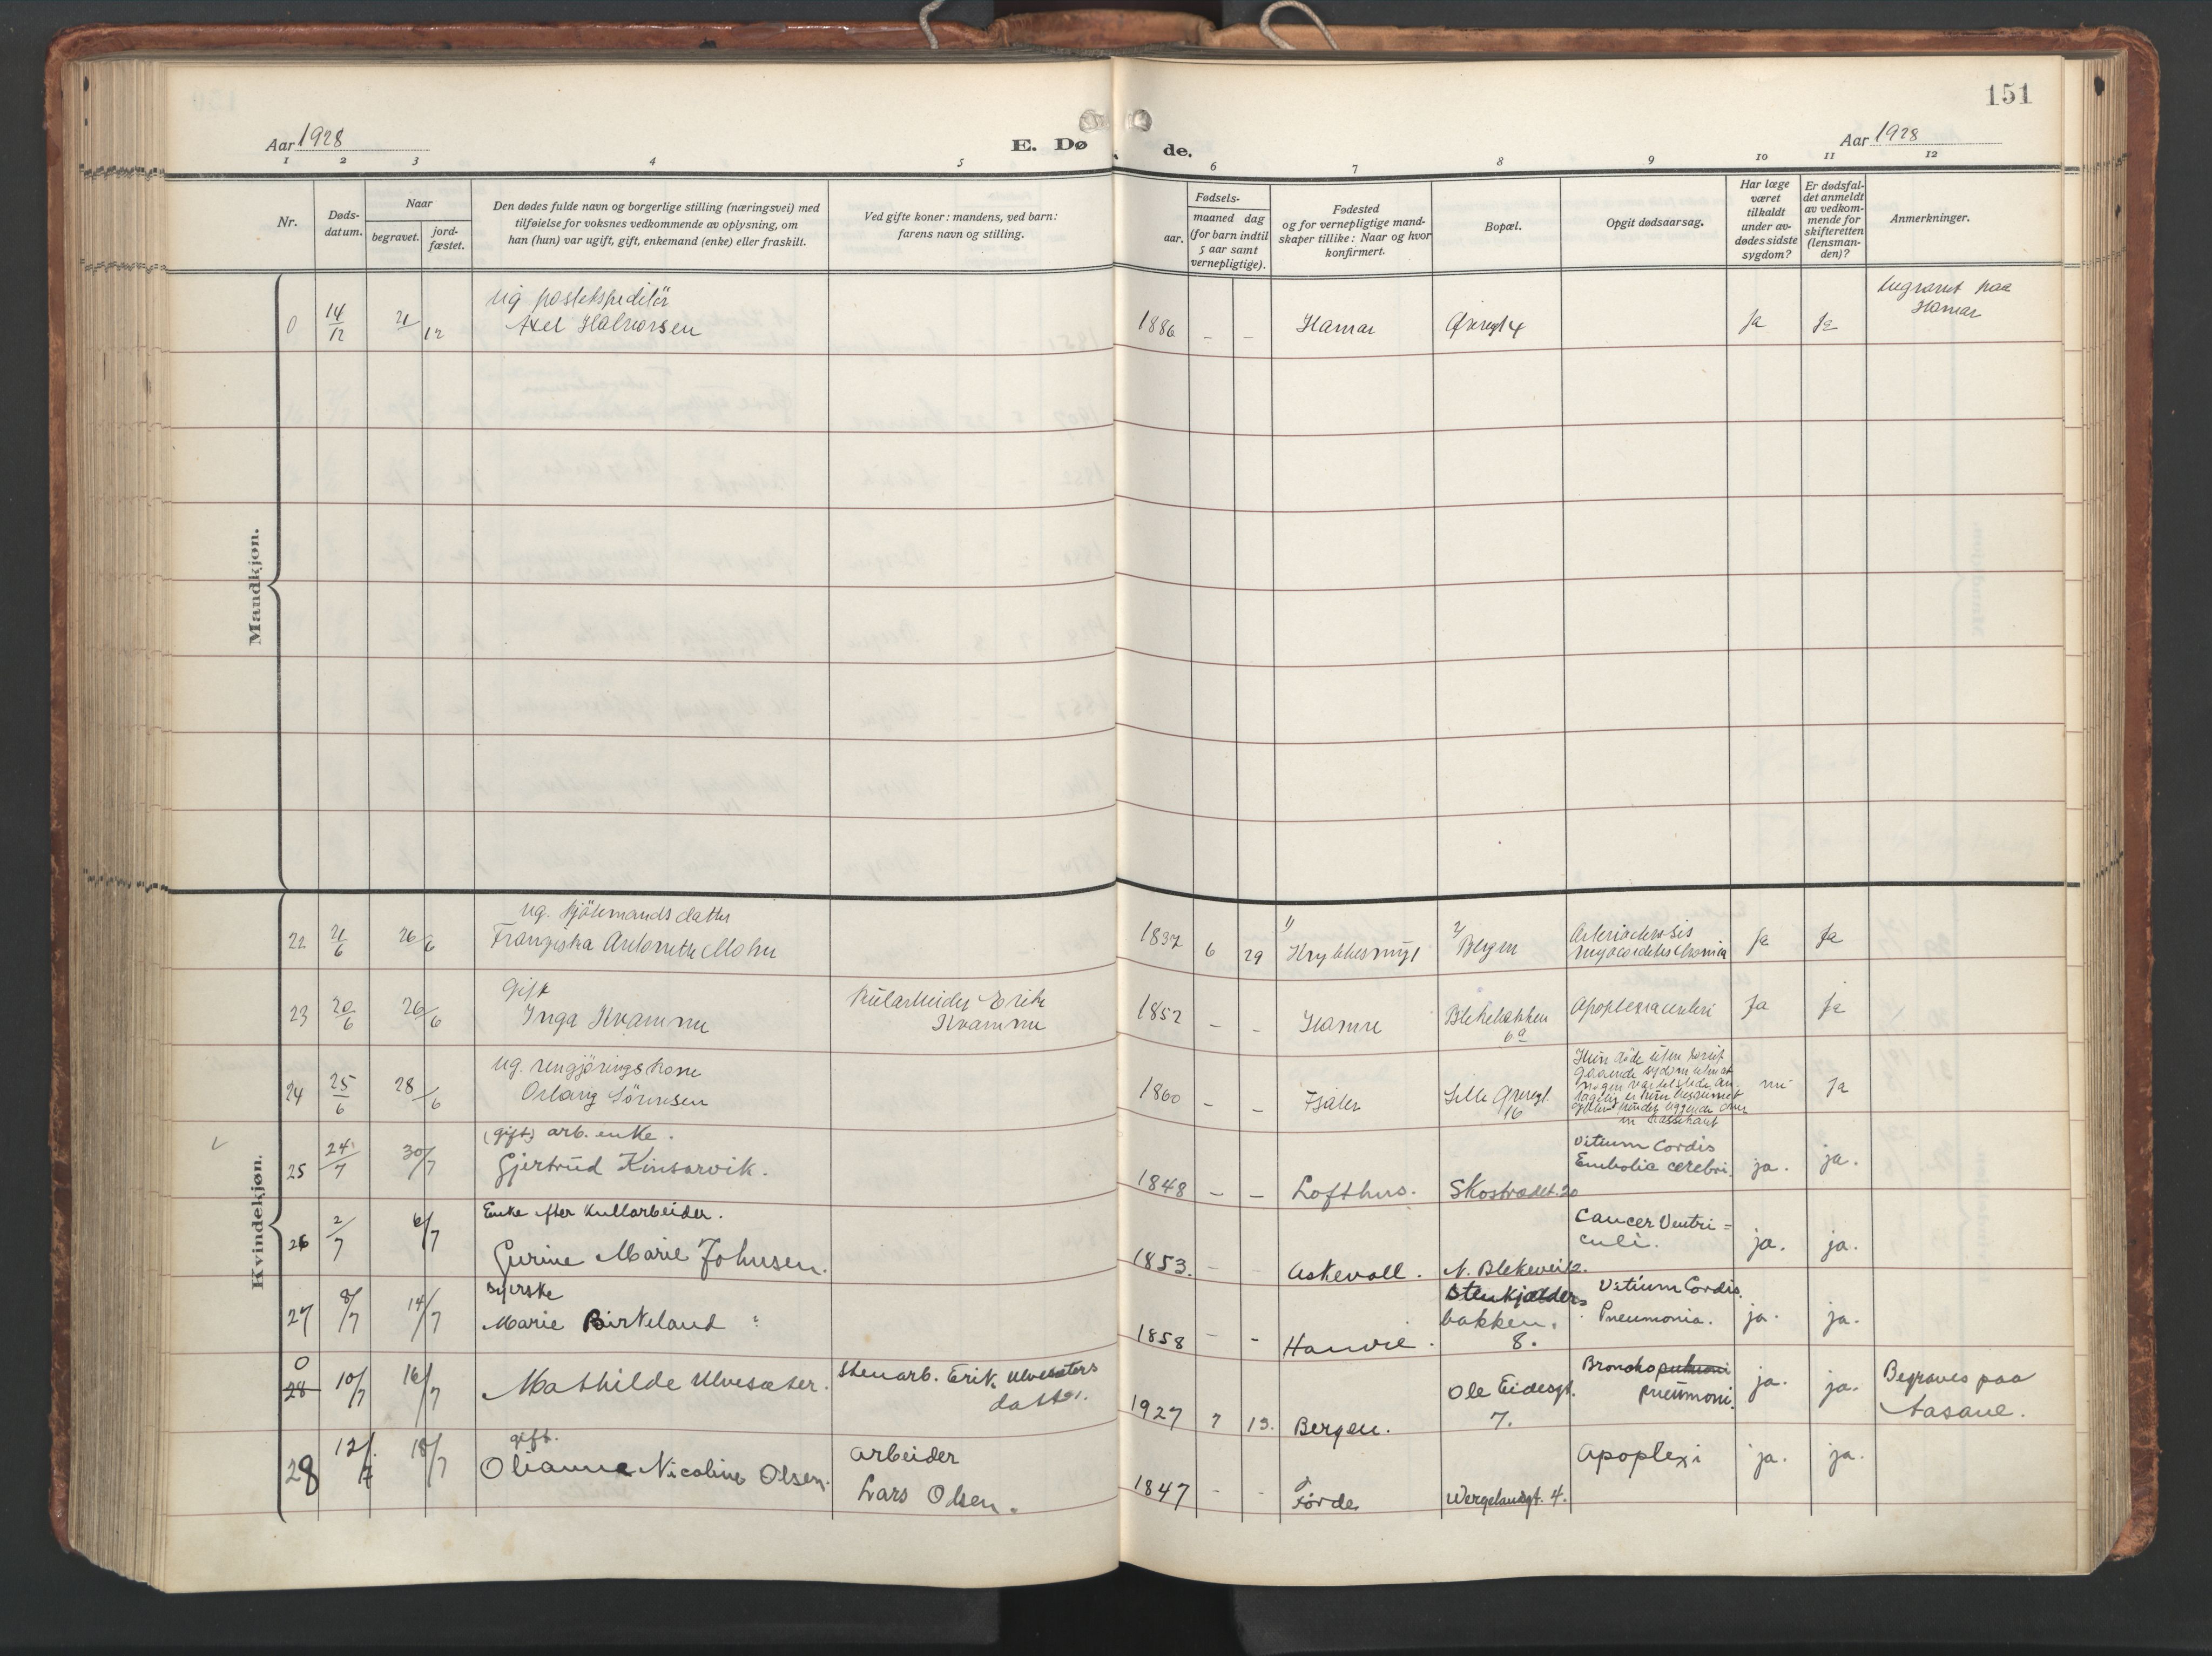 151
Aar 1928
E. Dødе.
Aar 1928
1 2 3 4 5 6 7 8 9 10 11 12
Nr.
Døds-
datum.
Naar
begravet.
jord-
fæstet.
Den dødes fulde navn og borgerlige stilling (næringsvei) med
tilføielse for voksnes vedkommende av oplysning, om
han (hun) var ugift, gift, enkemand (enke) eller fraskilt.
Ved gifte koner: mandens, ved barn:
farens navn og stilling.
Fødsels-
aar.
maaned dag
(for barn indtil
5 aar samt
vernepligtige).
Fødested
og for vernepligtige mand-
skaper tillike: Naar og hvor
konfirmert.
Bopæl.
Opgit dødsaarsag.
Har læge
været
tilkaldt
under av-
dødes sidste
sygdom?
Er dødsfal-
det anmeldt
av vedkom-
mende for
skifteretten
(lensman-
den)?
Anmerkninger.
Mandkjøn.
0 14/12 21/12 ug postekspeditör
Axel Halvorsen
1886 - - Hamar Øvregt 4 Ja Ja
begravet paa
Hamar
Kvindekjøn.
22 21/6 26/6 ug. skjötsmands datter
Frangiska Antonette Mohn
1837 6 29 Bergen
Ja Ja
23 20/6 26/6 gift
Inga Kvamme
Kularbeider Erik
Kvamme
1852 - - Hamre Blekebakken
6a
Apoplexia cerebri Ja Ja
24 25/6 28/6 ug. rengjörings kone
Sörensen
1860 - - Lille Øvregt.
16
Hun döde uten forut
gaaende sygdom
nei Ja
25 24/7 30/7 (gift) arb. enke.
Gjertrud Kinsarvik.
1848 - - Lofthus. Skostrædet. 20
Vitium Cordis
Embolia cerebri. ja. ja.
26 2/7 6/7 Enke efter Kullarbeider.
Gurine Marie Johnsen.
1853. - - Askevoll. N. Blekeveie.
Cancer Ventri=
culi. ja. ja.
27 8/7 14/7 Syerske
Marie Birkeland
1858 - - Hamre. Stenkjælder-
bakken.
8.
Vitium Cordis.
Pneumonia. ja. ja.
0
28 10/7 16/7 Mathilde Ulvesæter.
Stenarb. Erik Ulvesæters
datter.
1927 7 13. Bergen. Ole Eidesgt.
7.
Broncho
pneumoni. ja. ja.
Begraves paa
Aasane.
28 12/7 18/7 gift.
Olianna Nicoline Olsen.
Arbeider
Lars Olsen.
1847 - - Førde Wergelandsgt. 4.
Apoplexi ja. ja.